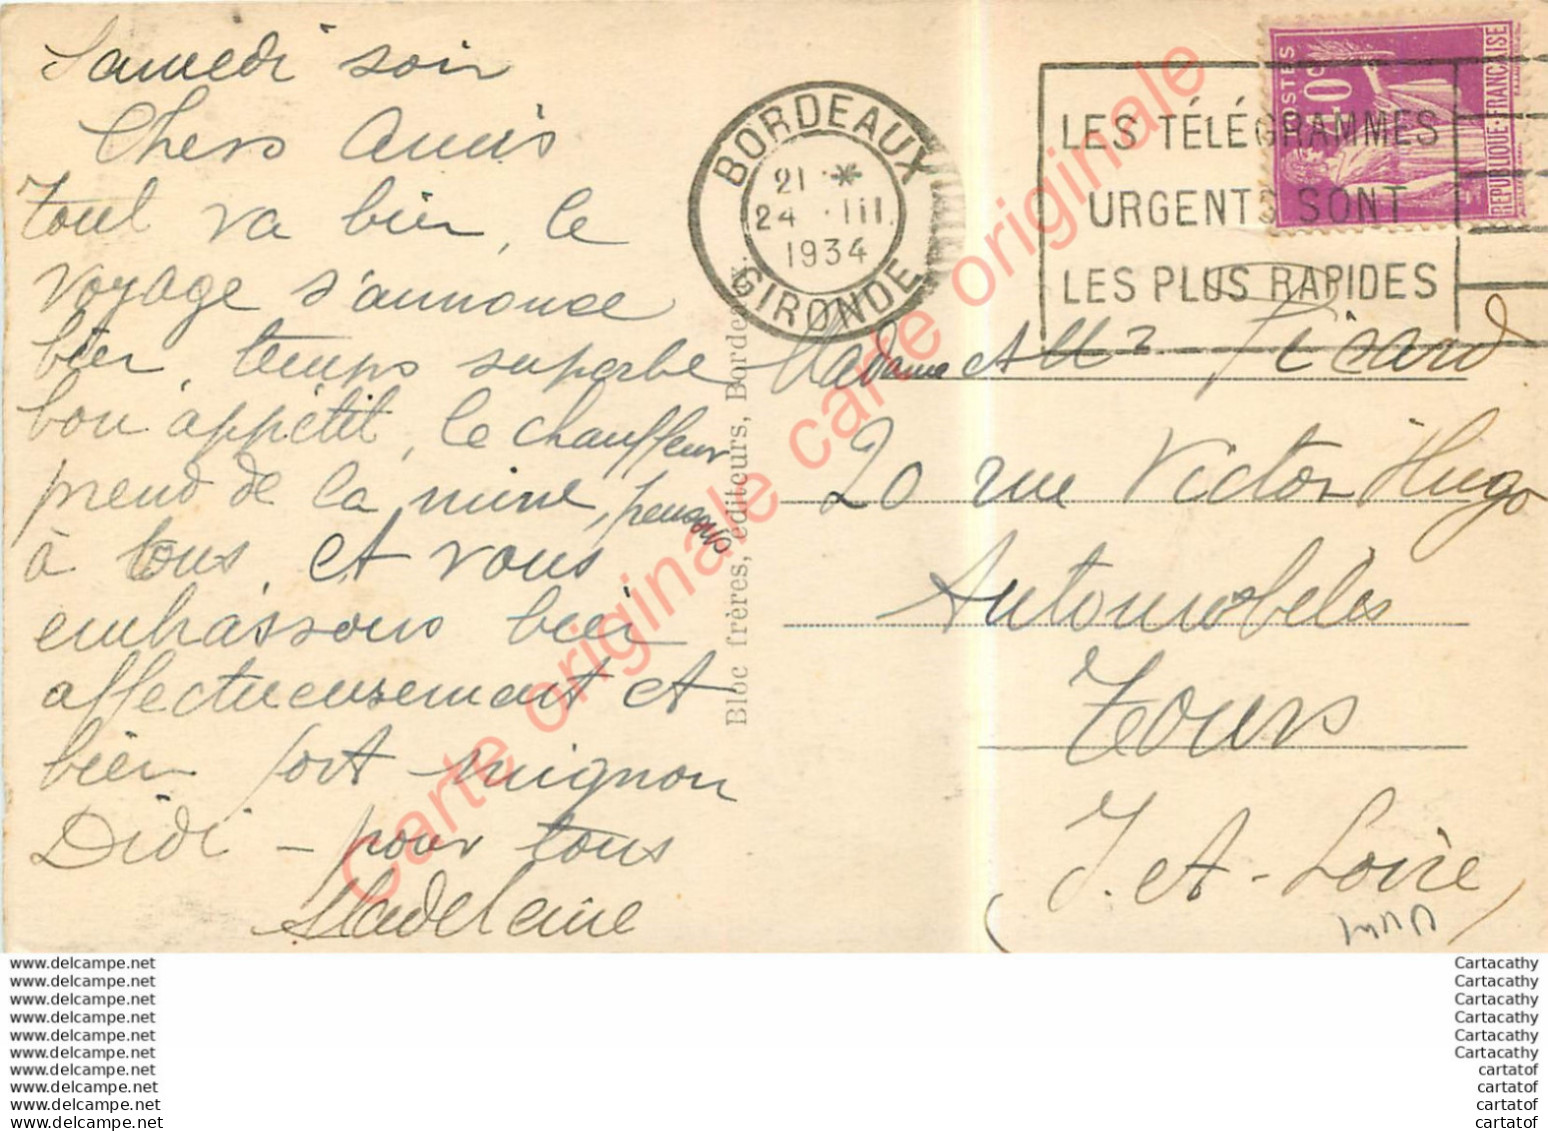 Samedi soir
Chers Amis
tout va bien, le
voyage s'annonce
bien, temps superbe
bon appétit, le chauffeur
prend de la mine, pensons
à tous, et vous
embrassons bien
affectueusement et
bien fort mignon
Didi - pour tous
Madeleine
Bloc frères, éditeurs, Bordeaux
BORDEAUX
21 *
24 · III.
1934
GIRONDE
LES TÉLÉGRAMMES
URGENTS SONT
LES PLUS RAPIDES
POSTES
40c
REPUBLIQUE·FRANÇAISE
Madame et Mr Picard
20 rue Victor Hugo
Automobiles
Tours
(I. et-Loire)
Carte originale carte originale carte originale
www.delcampe.net
www.delcampe.net
www.delcampe.net
www.delcampe.net
www.delcampe.net
www.delcampe.net
www.delcampe.net
www.delcampe.net
www.delcampe.net
www.delcampe.net
Cartacathy
Cartacathy
Cartacathy
Cartacathy
Cartacathy
Cartacathy
cartatof
cartatof
cartatof
cartatof